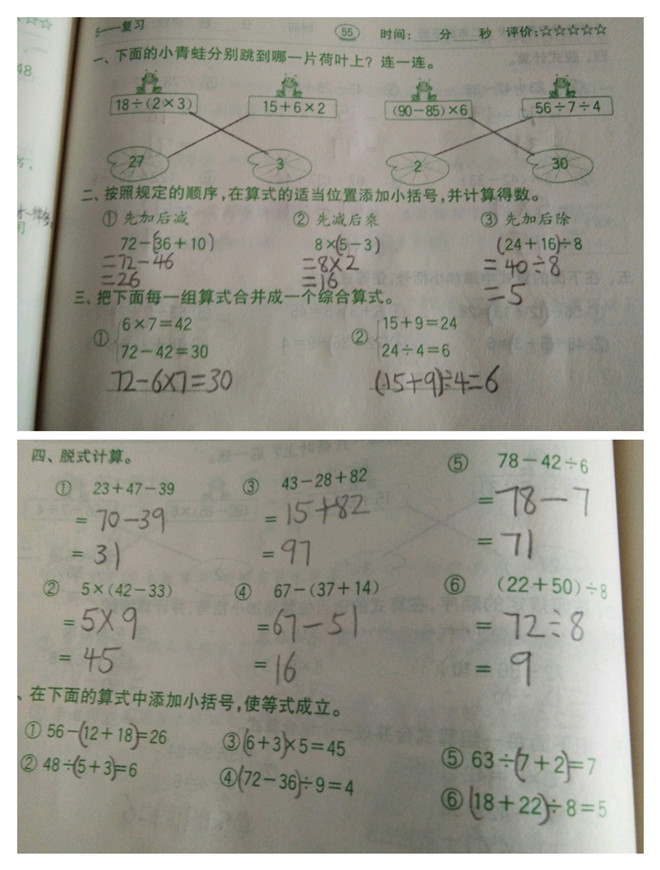 5——复习 55 时间：____分____秒 评价：☆☆☆☆☆
一、下面的小青蛙分别跳到哪一片荷叶上？连一连。
18÷(2×3) 15+6×2 (90-85)×6 56÷7÷4
27 3 2 30
二、按照规定的顺序，在算式的适当位置添加小括号，并计算得数。
① 先加后减 ② 先减后乘 ③ 先加后除
72-(36+10) 8×(5-3) (24+16)÷8
=72-46 =8×2 =40÷8
=26 =16 =5
三、把下面每一组算式合并成一个综合算式。
① 6×7=42 ② 15+9=24
72-42=30 24÷4=6
72-6×7=30 (15+9)÷4=6
四、脱式计算。
① 23+47-39 ③ 43-28+82 ⑤ 78-42÷6
=70-39 =15+82 =78-7
=31 =97 =71
② 5×(42-33) ④ 67-(37+14) ⑥ (22+50)÷8
=5×9 =67-51 =72÷8
=45 =16 =9
、在下面的算式中添加小括号，使等式成立。
① 56-(12+18)=26 ③ (6+3)×5=45 ⑤ 63÷(7+2)=7
② 48÷(5+3)=6 ④ (72-36)÷9=4 ⑥ (18+22)÷8=5